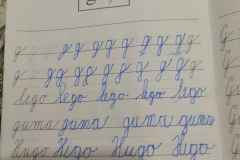 g
g g g g g g g g g g
g g g g g g g g g g
lego lego lego lego lego
guma guma guma guma
Hugo Hugo Hugo Hugo